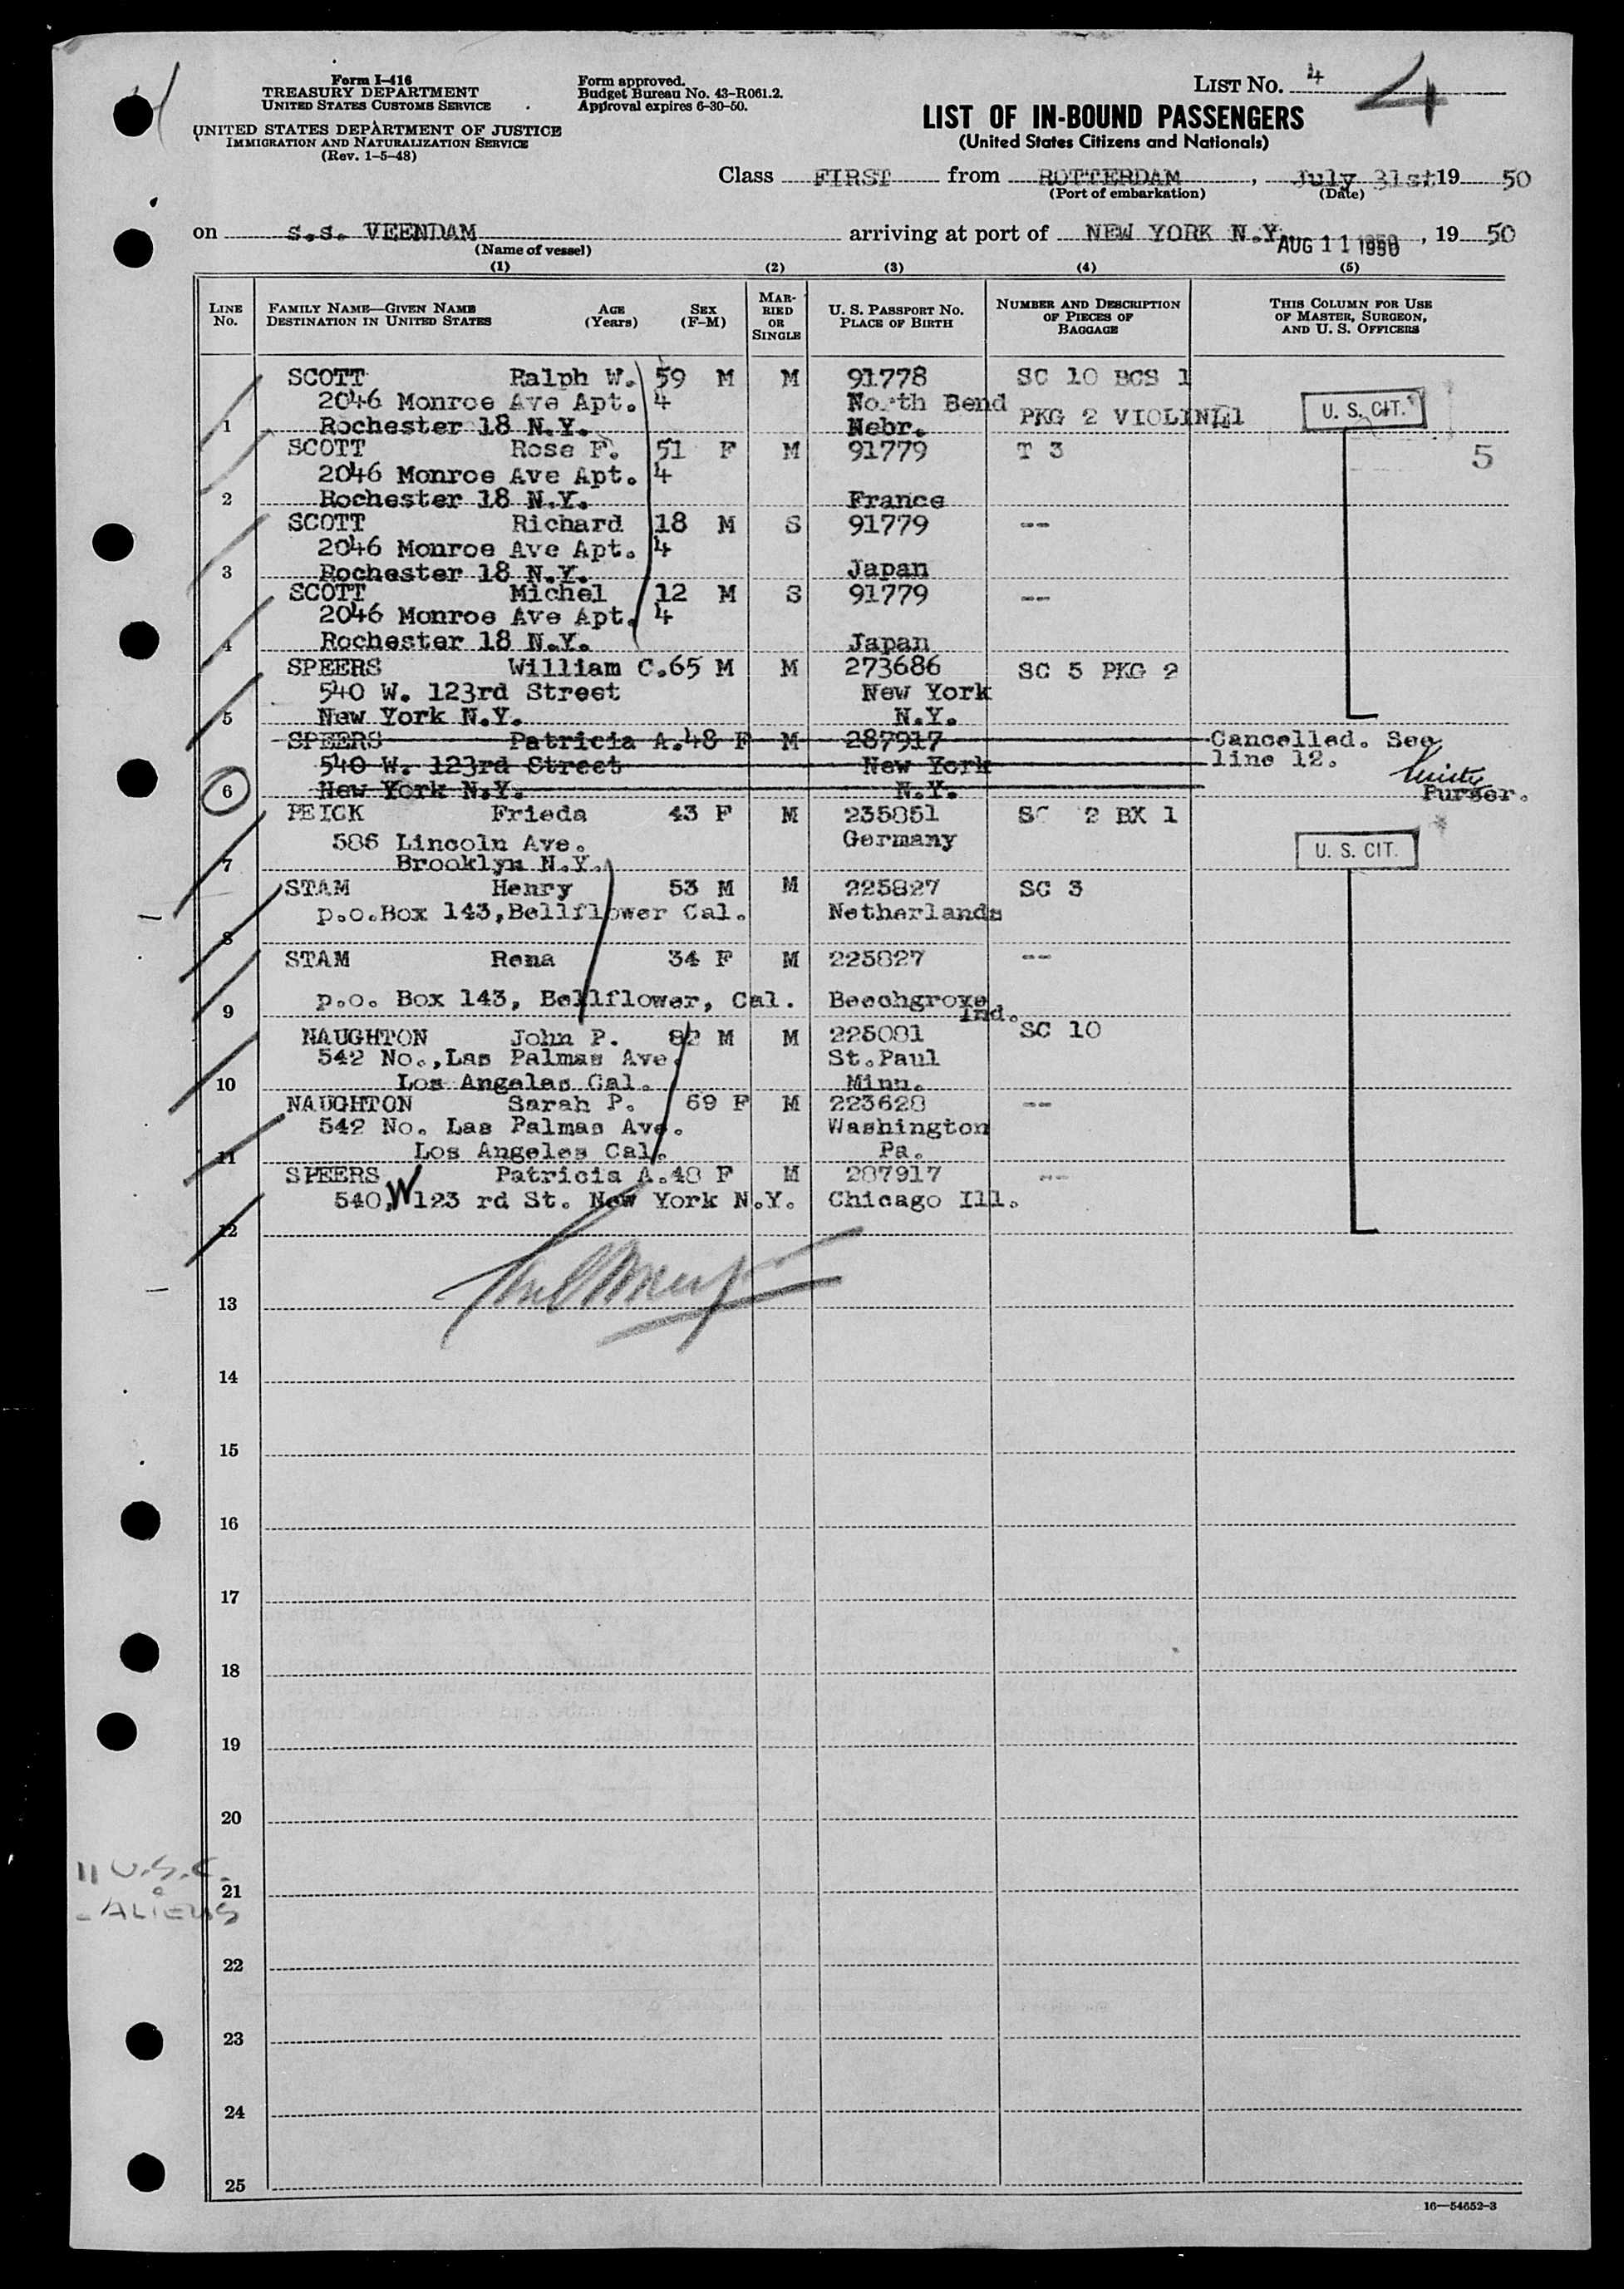 Form I-416
TREASURY DEPARTMENT
UNITED STATES CUSTOMS SERVICE
UNITED STATES DEPARTMENT OF JUSTICE
IMMIGRATION AND NATURALIZATION SERVICE
(Rev. 1-5-48)
Form approved.
Budget Bureau No. 43-R061.2.
Approval expires 6-30-50.
LIST NO. 4 4
LIST OF IN-BOUND PASSENGERS
(United States Citizens and Nationals)
Class FIRST from ROTTERDAM, July 31st 19 50
(Port of embarkation) (Date)
on s.s. VEENDAM arriving at port of NEW YORK N.Y. AUG 11 1950, 19 50
(Name of vessel)
(1) (2) (3) (4) (5)
LINE No. FAMILY NAME—GIVEN NAME DESTINATION IN UNITED STATES AGE (Years) SEX (F-M) MARRIED OR SINGLE U. S. PASSPORT NO. PLACE OF BIRTH NUMBER AND DESCRIPTION OF PIECES OF BAGGAGE THIS COLUMN FOR USE OF MASTER, SURGEON, AND U. S. OFFICERS
SCOTT Ralph W. 59 M M 91778 SC 10 BCS 1
2046 Monroe Ave Apt. 4 North Bend PKG 2 VIOLIN 1 U. S. CIT.
1 Rochester 18 N.Y. Nebr.
SCOTT Rose F. 51 F M 91779 T 3 5
2046 Monroe Ave Apt. 4
2 Rochester 18 N.Y. France
SCOTT Richard 18 M S 91779 --
2046 Monroe Ave Apt. 4
3 Rochester 18 N.Y. Japan
SCOTT Michel 12 M S 91779 --
2046 Monroe Ave Apt. 4
4 Rochester 18 N.Y. Japan
SPEERS William C. 65 M M 273686 SC 5 PKG 2
540 W. 123rd Street New York
5 New York N.Y. N.Y.
SPEERS Patricia A. 48 F M 287917 Cancelled. See
540 W. 123rd Street New York line 12.
6 New York N.Y. N.Y. Purser.
PEICK Frieda 43 F M 235851 SC 2 BX 1
586 Lincoln Ave. Germany U. S. CIT.
7 Brooklyn N.Y.
STAM Henry 53 M M 225827 SC 3
p.o.Box 143,Bellflower Cal. Netherlands
8
STAM Rena 34 F M 225827 --
p.o. Box 143, Bellflower, Cal. Beechgrove
9 Ind.
NAUGHTON John P. 82 M M 225081 SC 10
542 No.,Las Palmas Ave. St.Paul
10 Los Angelas Cal. Minn.
NAUGHTON Sarah P. 69 F M 223628 --
542 No. Las Palmas Ave. Washington
11 Los Angeles Cal. Pa.
SPEERS Patricia A. 48 F M 287917 --
540 W 123 rd St. New York N.Y. Chicago Ill.
12
13
14
15
16
17
18
19
20
11 U.S.C.
21
- ALIENS
22
23
24
25
16—54652-3